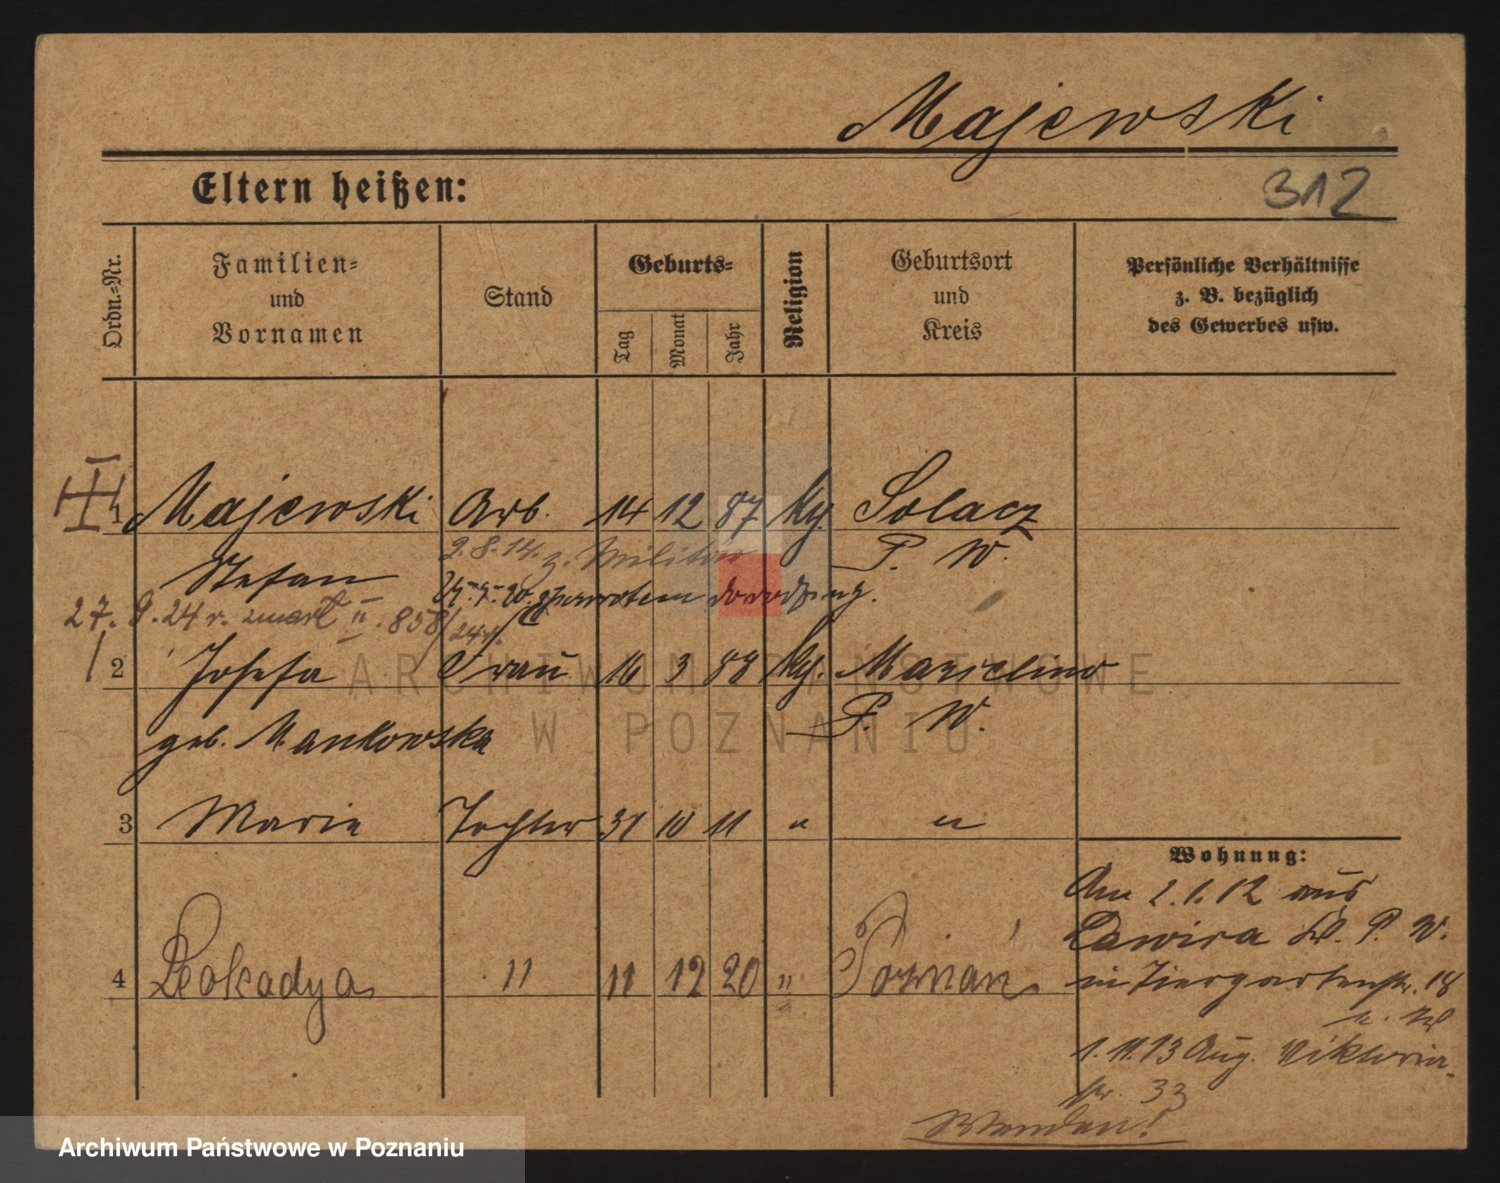 Majewski
Eltern heißen:
312
Ordn.-Nr.
Familien-
und
Vornamen
Stand
Geburts-
Tag
Monat
Jahr
Religion
Geburtsort
und
Kreis
Persönliche Verhältnisse
z. B. bezüglich
des Gewerbes usw.
1 Majewski Arb. 14 12 87 Solacz
Stefan P. W.
2.8.14. z. Militär
27. 9. 24 r. zmarł 858/24 r.
2 Josefa Frau 16 3 88 Marcelino
geb. Mankowska P. W.
3 Marie Tochter 31 10 11 " "
4 Leokadya " 11 12 20 " Poznań
Wohnung:
Am 2.1.12 aus
Lawica P. W.
in Tiergartenstr. 18
1.11.13 Aug. Viktoria-
str. 33
Wenden!
ARCHIWUM PAŃSTWOWE
W POZNANIU
Archiwum Państwowe w Poznaniu